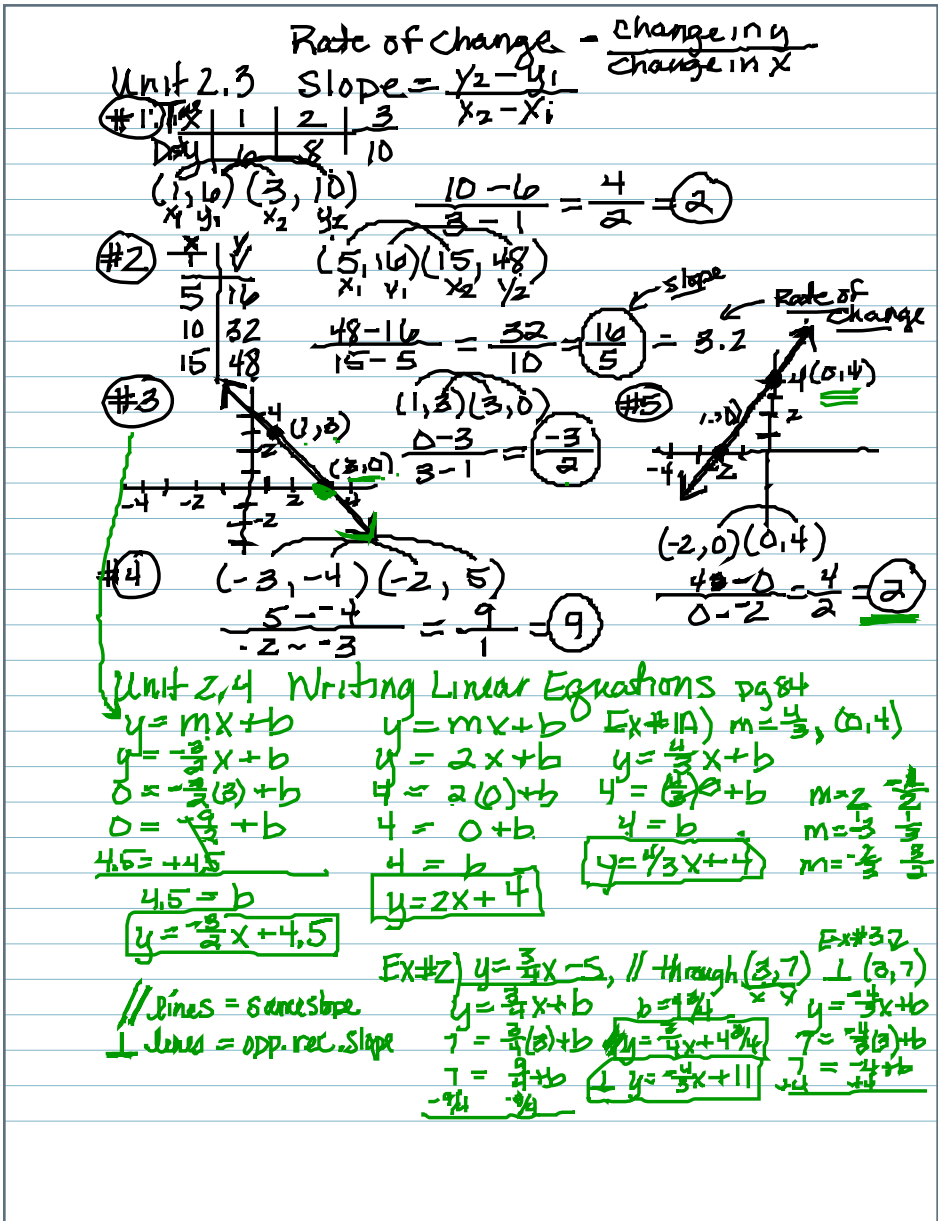 Rate of Change = change in y / change in x
Unit 2.3 Slope = y₂ - y₁ / x₂ - x₁
#1. x | 1 | 2 | 3
y | 6 | 8 | 10
(1, 6) (3, 10)
x₁ y₁ x₂ y₂
10 - 6 / 3 - 1 = 4/2 = 2
#2 x | y
5 | 16
10 | 32
15 | 48
(5, 16) (15, 48)
x₁ y₁ x₂ y₂
48 - 16 / 15 - 5 = 32/10 = 16/5 = 3.2
slope
Rate of Change
#3
4
2
(1, 3)
(3, 0)
-4 -2 2 4
-2
(1, 3) (3, 0)
0 - 3 / 3 - 1 = -3/2
#5
4 (0, 4)
2
-4 -2
(-2, 0) (0, 4)
4 - 0 / 0 - -2 = 4/2 = 2
#4 (-3, -4) (-2, 5)
5 - -4 / -2 - -3 = 9/1 = 9
Unit 2.4 Writing Linear Equations pg 84
y = mx + b
y = -3/2 x + b
0 = -3/2 (3) + b
0 = -9/2 + b
4.5 = +4.5
4.5 = b
y = -3/2 x + 4.5
y = mx + b
y = 2x + b
4 = 2(0) + b
4 = 0 + b
4 = b
y = 2x + 4
Ex #1A) m = 4/3, (0, 4)
y = 4/3 x + b
4 = (4/3)0 + b
4 = b
y = 4/3x + 4
m = 2 -1/2
m = -3 1/3
m = -2/3 3/2
// lines = same slope
⊥ lines = opp. rec. slope
Ex #2) y = 3/4 x - 5, // through (3, 7)
x y
y = 3/4 x + b
7 = 3/4 (3) + b
7 = 9/4 + b
-9/4 -9/4
b = 4 3/4
// y = 3/4 x + 4 3/4
⊥ y = -4/3 x + 11
Ex #3.2
⊥ (3, 7)
y = -4/3 x + b
7 = -4/3 (3) + b
7 = -4 + b
+4 +4